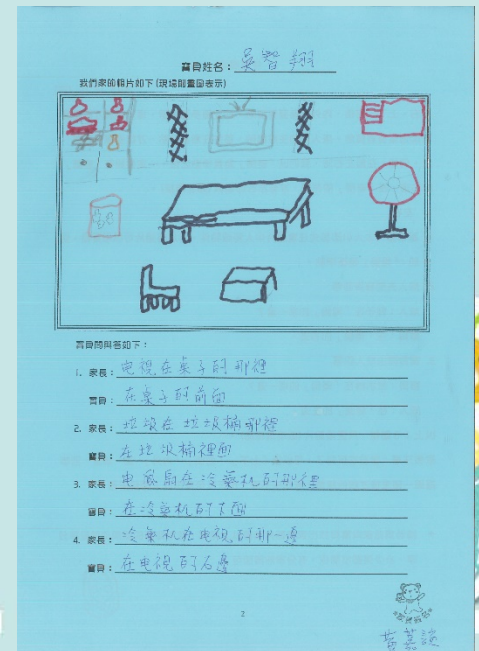 寶貝姓名：吳智翔
我們家的照片如下(現場部畫圖表示)
寶貝問與答如下：
1. 家長：电視在桌子的那裡
寶貝：在桌子的前面
2. 家長：垃圾在垃圾桶哪裡
寶貝：在垃圾桶裡面
3. 家長：电風扇在冷氣机的那裡
寶貝：在冷氣机的下面
4. 家長：冷氣机在电視的那一邊
寶貝：在电視的右邊
2